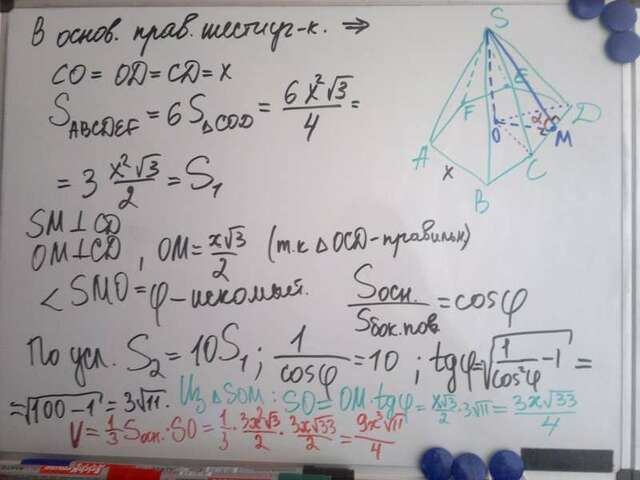 В основ. прав. шестиуг-к. ⇒
CO = OD = CD = x
S ABCDEF = 6 S△COD = 6x²√3/4 =
= 3 x²√3/2 = S₁
SM ⊥ CD
OM ⊥ CD, OM = x√3/2 (т.к △OCD - правильн)
∠SMO = φ - искомый. Sосн./Sбок.пов. = cosφ
По усл. S₂ = 10S₁; 1/cosφ = 10; tgφ = √(1/cos²φ - 1) =
= √(100 - 1) = 3√11. Из △SOM: SO = OM·tgφ = x√3/2 · 3√11 = 3x√33/4
V = 1/3 Sосн.·SO = 1/3 · 3x²√3/2 · 3x√33/2 = 9x³√11/4
S
E
F
D
O
M
A
C
x
B